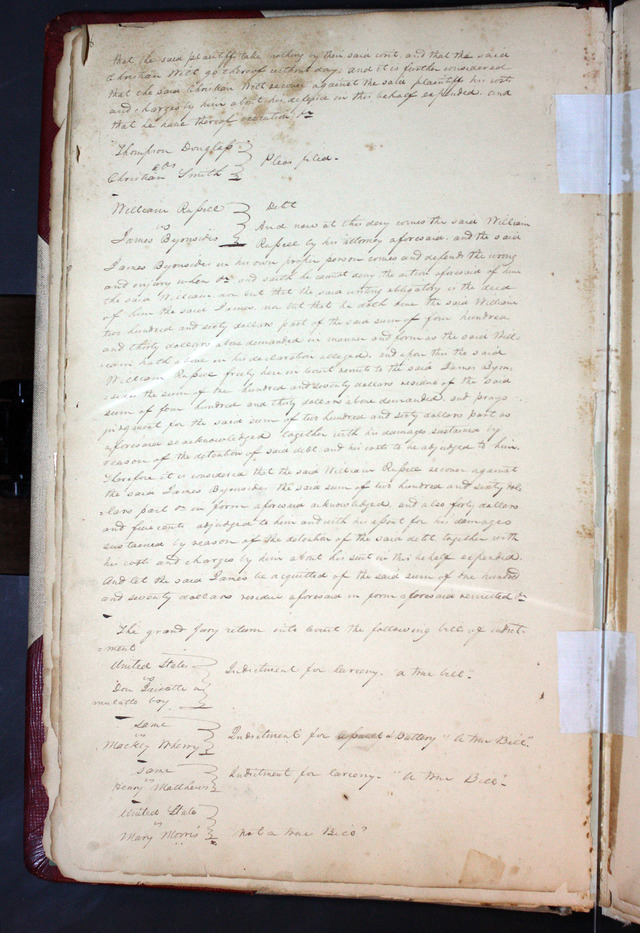 that the said plaintiff take nothing by their said writ, and that the said
Christian Witt go thereof without day, and it is further considered
that the said Christian Witt recover against the said plaintiffs his costs
and charges by him about his defense in this behalf expended, and
that he have thereof execution &c
Thompson Douglass
vs
Christian Smith
Pleas filed.
William Russell
vs
James Byrnsides
Debt
And now at this day comes the said William
Russell by his attorney aforesaid, and the said
James Byrnsides in his own proper person comes and defends the wrong
and injury when &c and saith he cannot deny the action aforesaid of him
the said William nor but that the said writing obligatory is the deed
of him the said James, nor but that he doth owe the said William
two hundred and sixty dollars part of the said sum of four hundred
and thirty dollars above demanded in manner and form as the said Will-
iam hath above in his declaration alleged, and upon this the said
William Russell freely here in Court remits to the said James Byrn-
sides the sum of one hundred and seventy dollars residue of the said
sum of four hundred and thirty dollars above demanded, and prays
judgment for the said sum of two hundred and sixty dollars part as
aforesaid so acknowledged together with his damages sustained by
reason of the detention of said debt and his costs to be adjudged to him.
Therefore it is considered that the said William Russell recover against
the said James Byrnsides the said sum of two hundred and sixty dol-
=lars part &c in form aforesaid acknowledged, and also forty dollars
and five cents adjudged to him and with his assent for his damages
sustained by reason of the detention of the said debt, together with
his costs and charges by him about his suit in this behalf expended.
And let the said James be acquitted of the said sum of one hundred
and seventy dollars residue aforesaid in form aforesaid remitted &c
The grand Jury return into Court the following bills of indict-
=ment
United States
vs
Don Quixotte a
mulatto boy
Indictment for larceny. "a true bill".
Same
vs
Mackey Wherry
Indictment for assault & Battery "A true Bill".
Same
vs
Henry Matthews
Indictment for larceny. "A true Bill".
United States
vs
Mary Morris
"Not a true Bill"